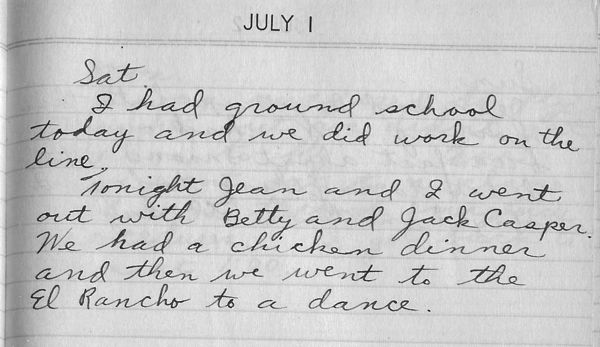 JULY 1
Sat
I had ground school
today and we did work on the
line.
Tonight Jean and I went
out with Betty and Jack Casper.
We had a chicken dinner
and then we went to the
El Rancho to a dance.